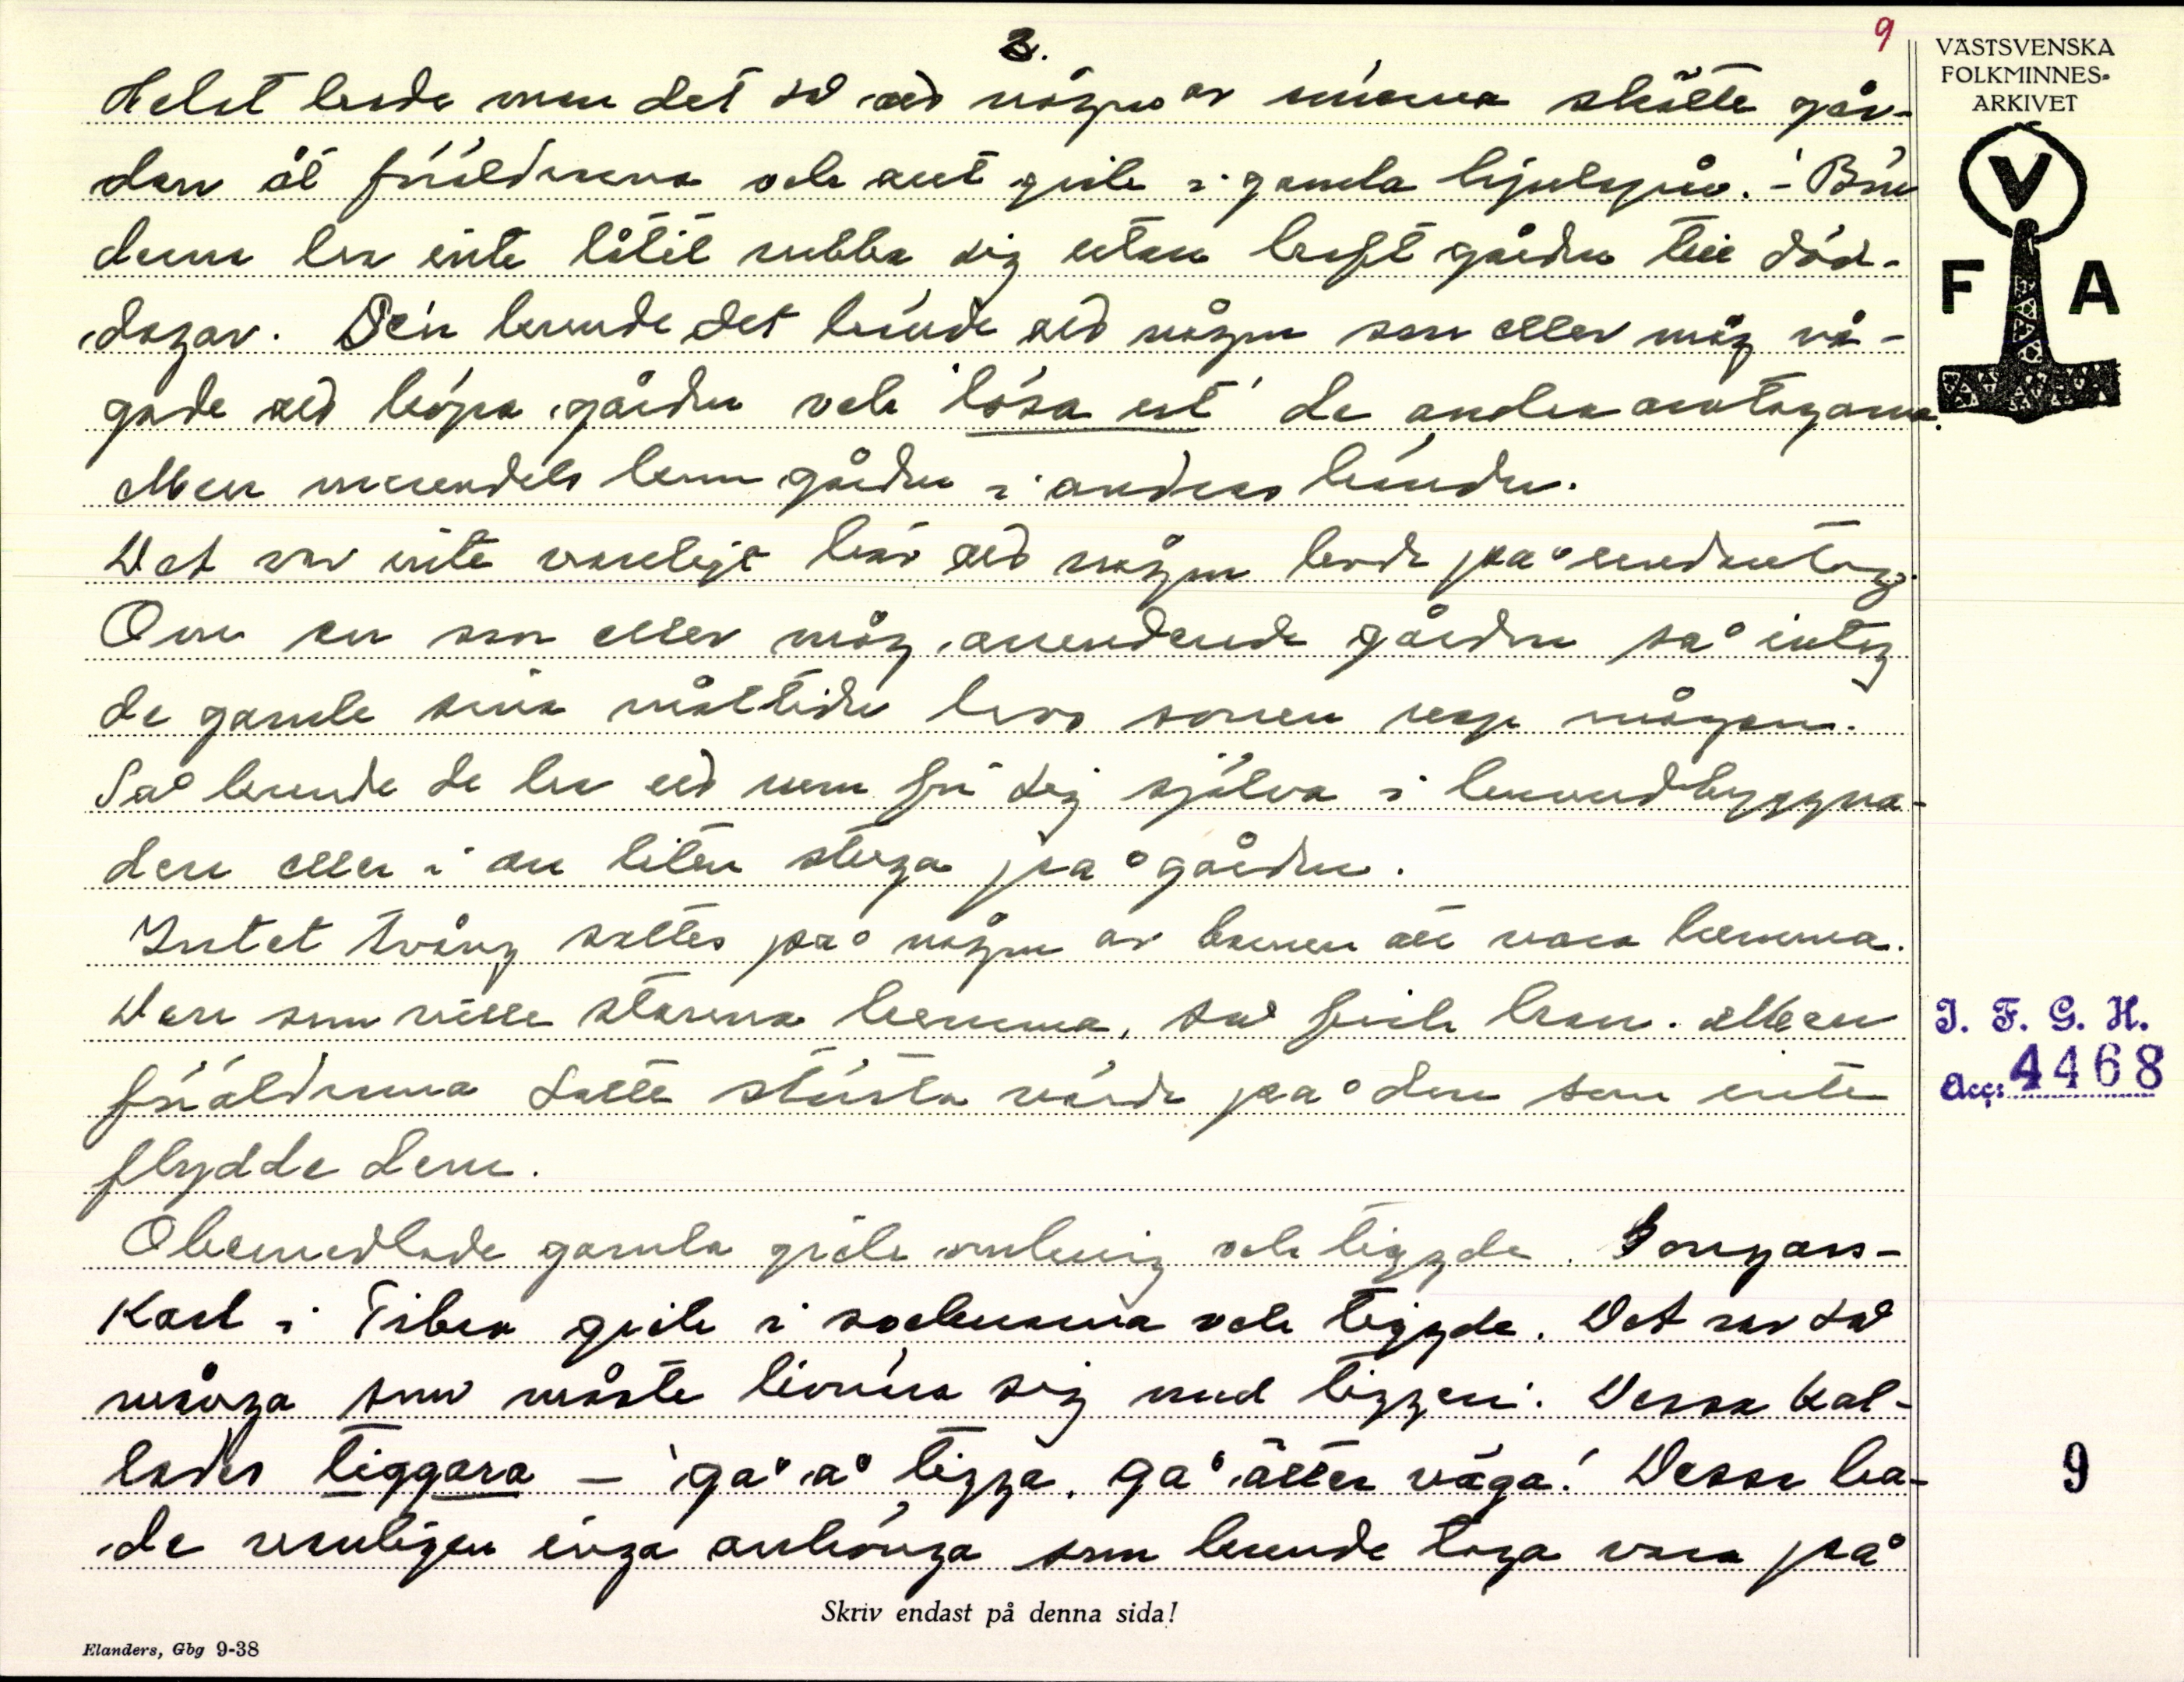 3.
9
VÄSTSVENSKA
FOLKMINNES-
ARKIVET
V
F A
Helst hade man det så att någon av sönerna skötte går-
den åt föräldrarna och allt gick i gamla hjulspår. - Bön
derna har inte låtit rubba sig utan haft gården till död-
dagar. Sen kunde det hända att någon son eller måg vå-
gade att köpa gården och "lösa ut" de andra arvtagarna.
Men merendels kom gården i andras händer.
Det var inte vanligt här att någon levde på undantag.
Om en son eller måg arrenderade gården så intog
de gamla sina måltider hos sonen resp mågen.
Så kunde de ha ett rum för sig själva i manbyggna-
den eller i en liten stuga på gården.
Intet tvång sattes på någon av barnen att vara hemma.
Den som ville stanna hemma, så fick han. Men
föräldrarna satte största värde på den som inte
flydde dem.
Obemedlade gamla gick omkring och tiggde.
Karl i Tibra gick i socknarna och tiggde. Det var så
många som måste livnära sig med tiggeri. Dessa kal-
lades tiggara - 'ga° a° tigga, ga° ätter väga! Dessa ha-
de vanligen inga anhöriga som kunde taga vara på
Skriv endast på denna sida!
Elanders, Gbg 9-38
I. F. G. H.
Acc: 4468
9